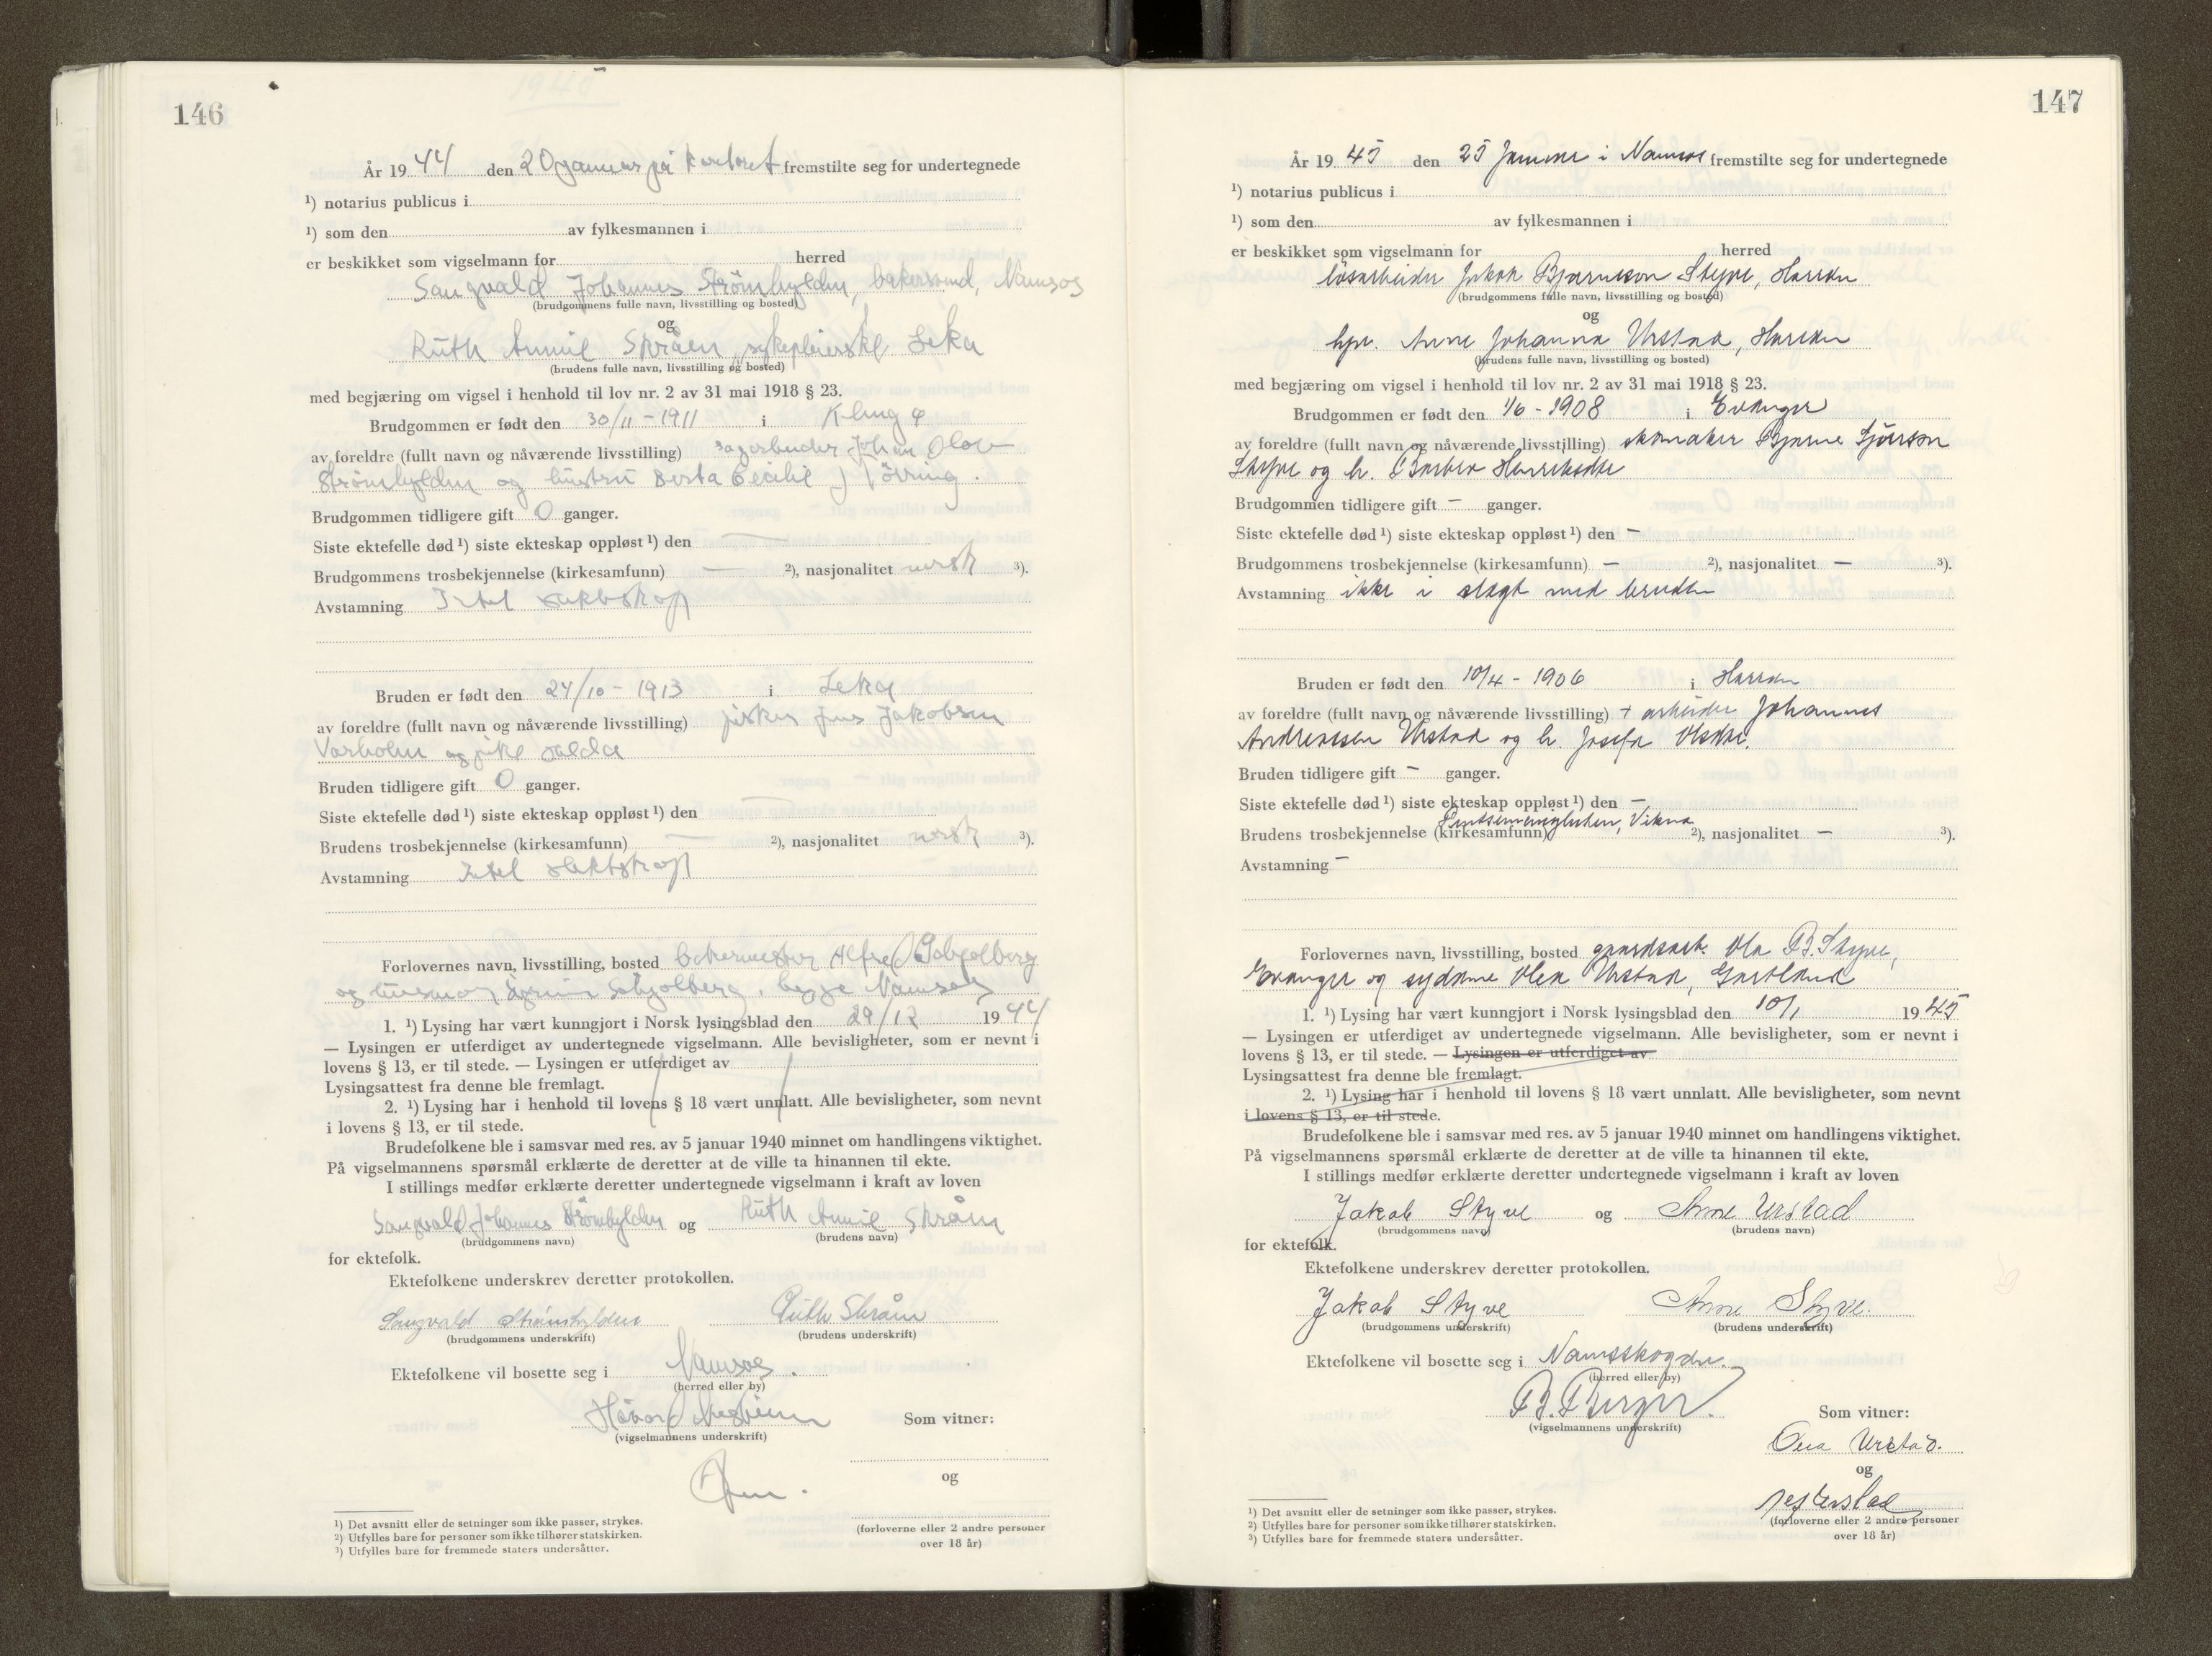 1945
146
År 1944 den 20 januar på kontoret fremstilte seg for undertegnede
¹) notarius publicus i
¹) som den av fylkesmannen i
er beskikket som vigselmann for herred
Sangvald Johannes Strømhylden, bakersvend, Namsos
(brudgommens fulle navn, livsstilling og bosted)
og
Ruth Annie Skråen, sykepleierske Leka
(brudens fulle navn, livsstilling og bosted)
med begjæring om vigsel i henhold til lov nr. 2 av 31 mai 1918 § 23.
Brudgommen er født den 30/11 - 1911 i Klinga
av foreldre (fullt navn og nåværende livsstilling) sagarbeider Johan Olav
Strømhylden og hustru Berta Cecilie
Brudgommen tidligere gift 0 ganger.
Siste ektefelle død¹) siste ekteskap oppløst¹) den —
Brudgommens trosbekjennelse (kirkesamfunn) — ²), nasjonalitet norsk ³).
Avstamning Intet slektskap
Bruden er født den 24/10 - 1913 i Leka
av foreldre (fullt navn og nåværende livsstilling) fisker Jens Jakobsen
Varholm og
Bruden tidligere gift 0 ganger.
Siste ektefelle død¹) siste ekteskap oppløst¹) den —
Brudens trosbekjennelse (kirkesamfunn) — ²), nasjonalitet norsk ³).
Avstamning Intet slektskap
Forlovernes navn, livsstilling, bosted bakermester Alfred
og begge Namsos
1. ¹) Lysing har vært kunngjort i Norsk lysingsblad den 29/12 1944
— Lysingen er utferdiget av undertegnede vigselmann. Alle bevisligheter, som er nevnt i
lovens § 13, er til stede. — Lysingen er utferdiget av
Lysingsattest fra denne ble fremlagt.
2. ¹) Lysing har i henhold til lovens § 18 vært unnlatt. Alle bevisligheter, som nevnt
i lovens § 13, er til stede.
Brudefolkene ble i samsvar med res. av 5 januar 1940 minnet om handlingens viktighet.
På vigselmannens spørsmål erklærte de deretter at de ville ta hinannen til ekte.
I stillings medfør erklærte deretter undertegnede vigselmann i kraft av loven
Sangvald Johannes Strømhylden og Ruth Annie Skråen
(brudgommens navn) (brudens navn)
for ektefolk.
Ektefolkene underskrev deretter protokollen.
Sangvald Strømhylden Ruth Skråen
(brudgommens underskrift) (brudens underskrift)
Ektefolkene vil bosette seg i Namsos.
(herred eller by)
Håvard
(vigselmannens underskrift)
Som vitner:
og
(forloverne eller 2 andre personer
over 18 år)
¹) Det avsnitt eller de setninger som ikke passer, strykes.
²) Utfylles bare for personer som ikke tilhører statskirken.
³) Utfylles bare for fremmede staters undersåtter.
147
År 1945 den 25 januar i Namsos fremstilte seg for undertegnede
¹) notarius publicus i
¹) som den av fylkesmannen i
er beskikket som vigselmann for herred
løsarbeider Jakob Bjarneson Styve, Harran
(brudgommens fulle navn, livsstilling og bosted)
og
hpr. Anne Johanna Urstad, Harran
(brudens fulle navn, livsstilling og bosted)
med begjæring om vigsel i henhold til lov nr. 2 av 31 mai 1918 § 23.
Brudgommen er født den 1/6 - 1908 i Evanger
av foreldre (fullt navn og nåværende livsstilling) skomaker Bjarne
Styve og h.
Brudgommen tidligere gift — ganger.
Siste ektefelle død¹) siste ekteskap oppløst¹) den —
Brudgommens trosbekjennelse (kirkesamfunn) — ²), nasjonalitet — ³).
Avstamning ikke i slegt med bruden
Bruden er født den 10/4 - 1906 i Harran
av foreldre (fullt navn og nåværende livsstilling) + arbeider Johannes
Andreassen Urstad og h. Josefa Olsdtr.
Bruden tidligere gift — ganger.
Siste ektefelle død¹) siste ekteskap oppløst¹) den —
Brudens trosbekjennelse (kirkesamfunn) Vikna ²), nasjonalitet — ³).
Avstamning —
Forlovernes navn, livsstilling, bosted gaardsarb. Ola B. Styve,
Evanger og sydame Olea Urstad, Gartland
1. ¹) Lysing har vært kunngjort i Norsk lysingsblad den 10/1 1945
— Lysingen er utferdiget av undertegnede vigselmann. Alle bevisligheter, som er nevnt i
lovens § 13, er til stede. — Lysingen er utferdiget av
Lysingsattest fra denne ble fremlagt.
2. ¹) Lysing har i henhold til lovens § 18 vært unnlatt. Alle bevisligheter, som nevnt
i lovens § 13, er til stede.
Brudefolkene ble i samsvar med res. av 5 januar 1940 minnet om handlingens viktighet.
På vigselmannens spørsmål erklærte de deretter at de ville ta hinannen til ekte.
I stillings medfør erklærte deretter undertegnede vigselmann i kraft av loven
Jakob Styve og Anne Urstad
(brudgommens navn) (brudens navn)
for ektefolk.
Ektefolkene underskrev deretter protokollen.
Jakob Styve Anne Styve.
(brudgommens underskrift) (brudens underskrift)
Ektefolkene vil bosette seg i Namsskogan.
(herred eller by)
B. Berger.
(vigselmannens underskrift)
Som vitner:
Olea Urstad.
og
(forloverne eller 2 andre personer
over 18 år)
¹) Det avsnitt eller de setninger som ikke passer, strykes.
²) Utfylles bare for personer som ikke tilhører statskirken.
³) Utfylles bare for fremmede staters undersåtter.